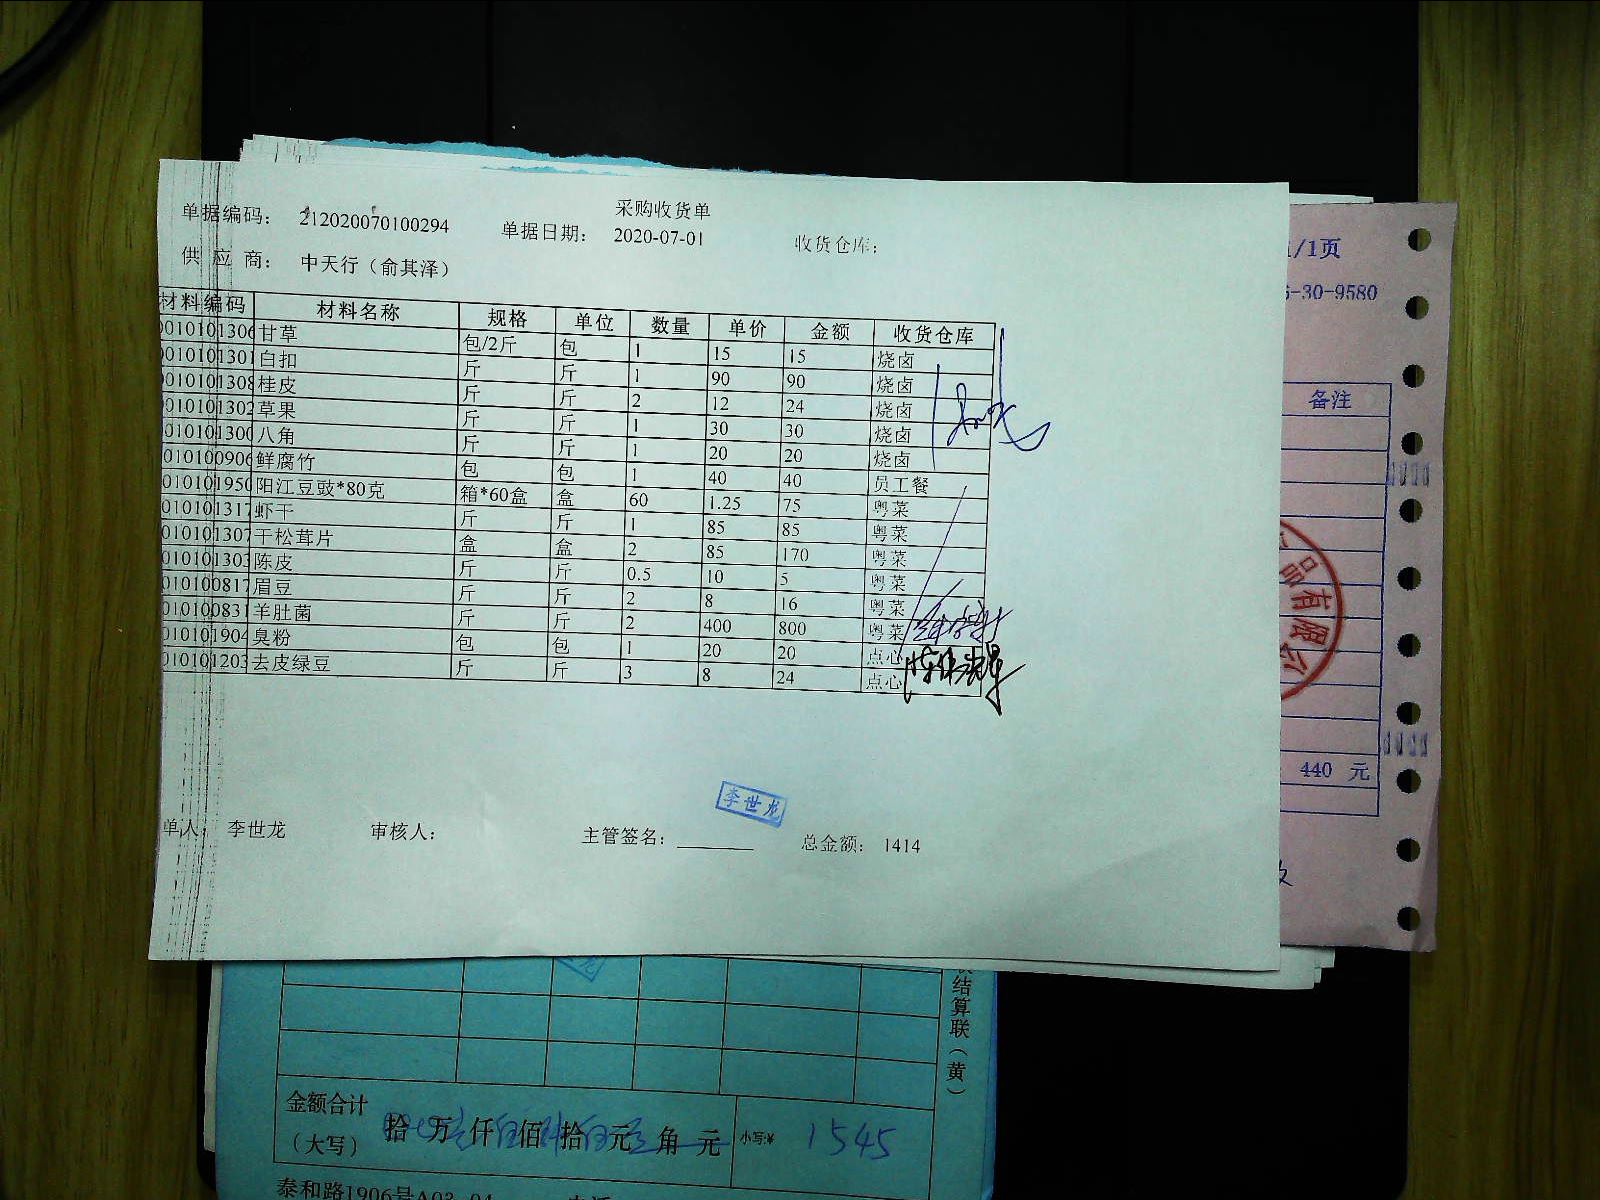 采购收货单
单据编码： 212020070100294 单据日期： 2020-07-01 收货仓库：
供 应 商： 中天行（俞其泽）
材料编码 材料名称 规格 单位 数量 单价 金额 收货仓库
0010101306 甘草 包/2斤 包 1 15 15 烧卤
0010101301 白扣 斤 斤 1 90 90 烧卤
0010101308 桂皮 斤 斤 2 12 24 烧卤
0010101302 草果 斤 斤 1 30 30 烧卤
0010101300 八角 斤 斤 1 20 20 烧卤
0010100906 鲜腐竹 包 包 1 40 40 员工餐
0010101950 阳江豆豉*80克 箱*60盒 盒 60 1.25 75 粤菜
0010101317 虾干 斤 斤 1 85 85 粤菜
0010101307 干松茸片 盒 盒 2 85 170 粤菜
0010101303 陈皮 斤 斤 0.5 10 5 粤菜
010100817 眉豆 斤 斤 2 8 16 粤菜
010100831 羊肚菌 斤 斤 2 400 800 粤菜
010101904 臭粉 包 包 1 20 20 点心
010101203 去皮绿豆 斤 斤 3 8 24 点心
李世龙
单人： 李世龙 审核人： 主管签名： 总金额： 1414
1/1页
6-30-9580
备注
品有限公
440 元
结算联（黄）
金额合计
（大写） 拾 万 仟 佰 拾 元 角 元 小写:¥ 1545
泰和路1906号A03-04